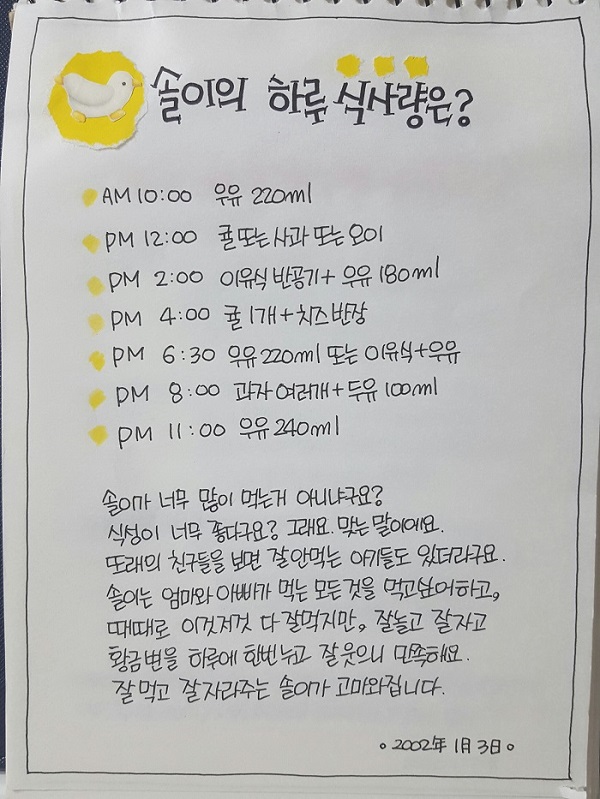 솔이의 하루 식사량은?
AM 10:00 우유 220ml
PM 12:00 귤 또는 사과 또는 오이
PM 2:00 이유식 반공기 + 우유 180ml
PM 4:00 귤 1개 + 치즈 반장
PM 6:30 우유 220ml 또는 이유식+우유
PM 8:00 과자 여러개 + 두유 100ml
PM 11:00 우유 240ml
솔이가 너무 많이 먹는거 아니냐구요?
식성이 너무 좋다구요? 그래요. 맞는 말이에요.
또래의 친구들을 보면 잘 안먹는 아기들도 있더라구요.
솔이는 엄마와 아빠가 먹는 모든것을 먹고싶어하고,
때때로 이것저것 다 잘먹지만, 잘놀고 잘자고
황금변을 하루에 한번 누고 잘 웃으니 만족해요.
잘 먹고 잘 자라주는 솔이가 고마와집니다.
2002年 1月 3日